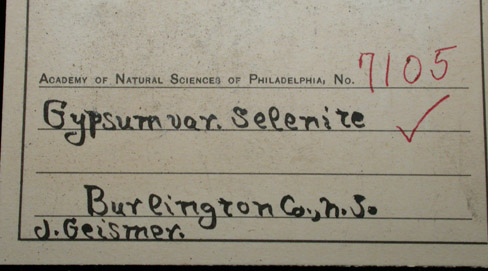 ACADEMY OF NATURAL SCIENCES OF PHILADELPHIA, NO. 7105
Gypsum var. Selenite
Burlington Co., N.J.
J. Geismer.